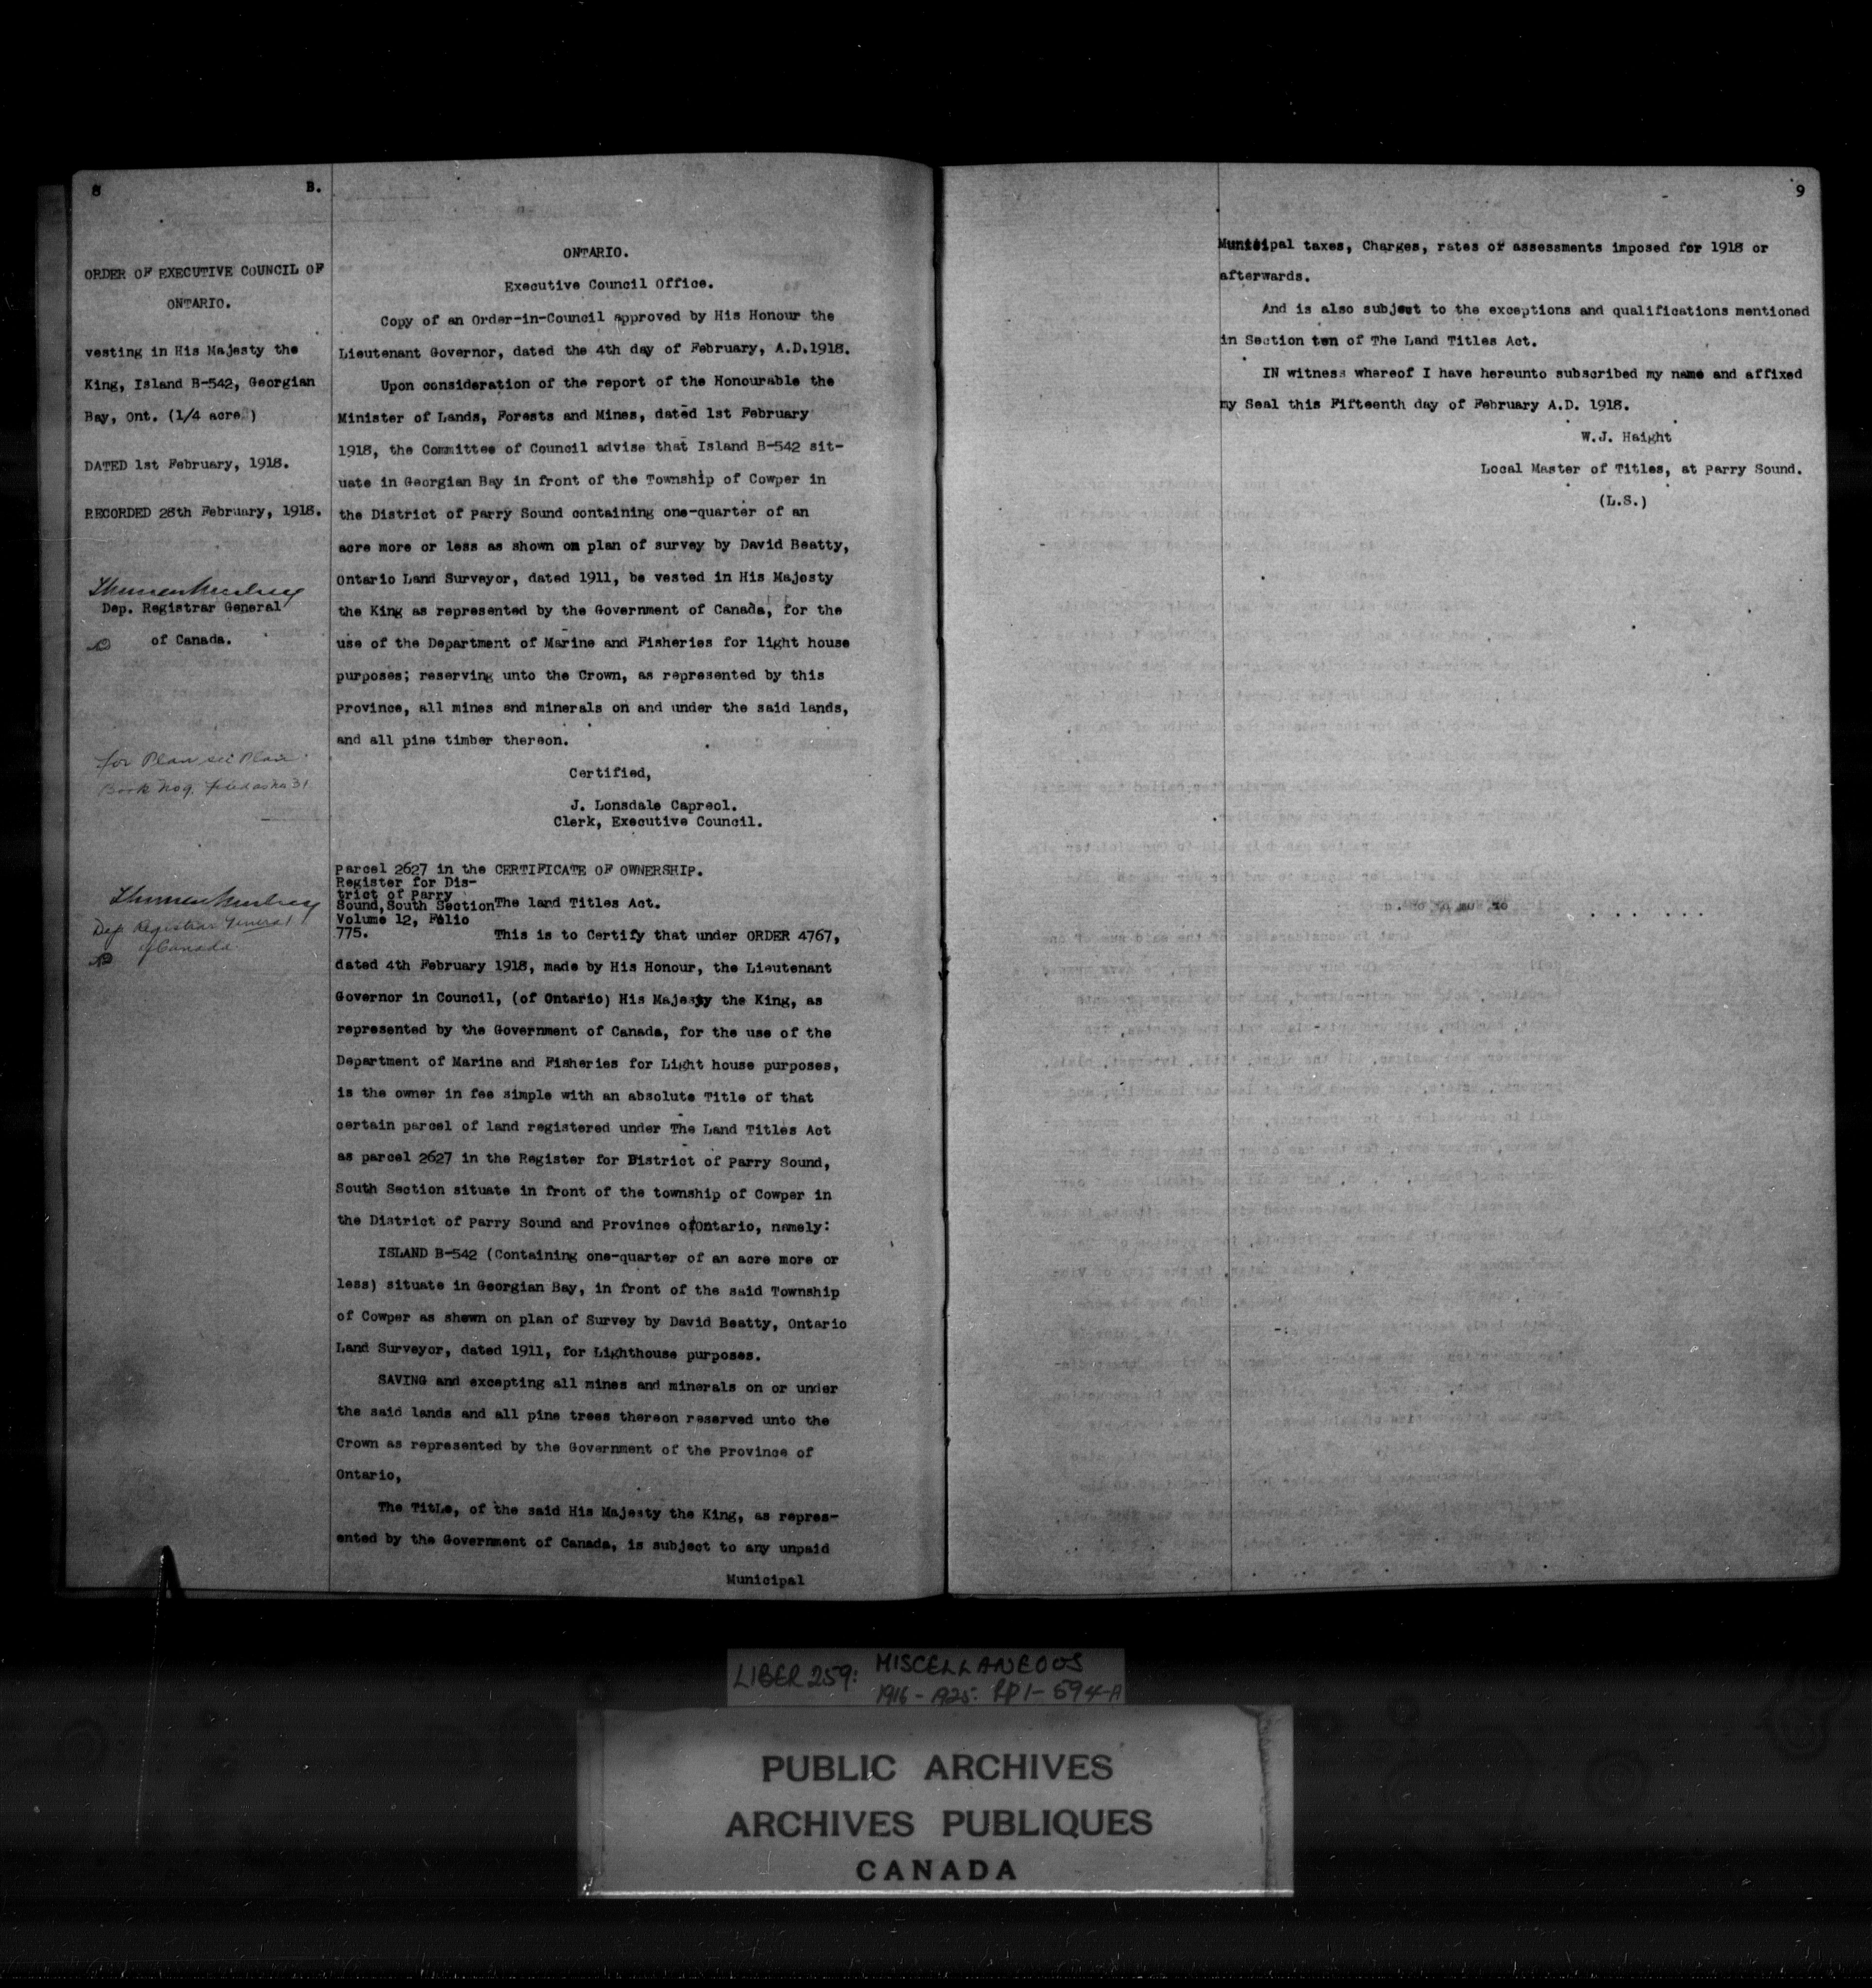 8
B.
ORDER OF EXECUTIVE COUNCIL OF
ONTARIO.
vesting in His Majesty the
King, Island B-542, Georgian
Bay, Ont. (1/4 acre )
DATED 1st February, 1918.
RECORDED 28th February, 1918.
Dep. Registrar General
of Canada.
for Plan see Plan
Book No 9. filed as No 31
Dep Registrar General
of Canada.
ONTARIO.
Executive Council Office.
Copy of an Order-in-Council approved by His Honour the
Lieutenant Governor, dated the 4th day of February, A.D.1918.
Upon consideration of the report of the Honourable the
Minister of Lands, Forests and Mines, dated 1st February
1918, the Committee of Council advise that Island B-542 sit-
uate in Georgian Bay in front of the Township of Cowper in
the District of Parry Sound containing one-quarter of an
acre more or less as shown on plan of survey by David Beatty,
Ontario Land Surveyor, dated 1911, be vested in His Majesty
the King as represented by the Government of Canada, for the
use of the Department of Marine and Fisheries for light house
purposes; reserving unto the Crown, as represented by this
Province, all mines and minerals on and under the said lands,
and all pine timber thereon.
Certified,
J. Lonsdale Capreol.
Clerk, Executive Council.
Parcel 2627 in the
Register for Dis-
trict of Parry
Sound,South Section
Volume 12, Folio
775.
CERTIFICATE OF OWNERSHIP.
The land Titles Act.
This is to Certify that under ORDER 4767,
dated 4th February 1918, made by His Honour, the Lieutenant
Governor in Council, (of Ontario) His Majesty the King, as
represented by the Government of Canada, for the use of the
Department of Marine and Fisheries for Light house purposes,
is the owner in fee simple with an absolute Title of that
certain parcel of land registered under The Land Titles Act
as parcel 2627 in the Register for District of Parry Sound,
South Section situate in front of the township of Cowper in
the District of Parry Sound and Province of Ontario, namely:
ISLAND B-542 (Containing one-quarter of an acre more or
less) situate in Georgian Bay, in front of the said Township
of Cowper as shewn on plan of Survey by David Beatty, Ontario
Land Surveyor, dated 1911, for Lighthouse purposes.
SAVING and excepting all mines and minerals on or under
the said lands and all pine trees thereon reserved unto the
Crown as represented by the Government of the Province of
Ontario,
The TitLe, of the said His Majesty the King, as repres-
ented by the Government of Canada, is subject to any unpaid
Municipal
9
Municipal taxes, Charges, rates or assessments imposed for 1918 or
afterwards.
And is also subject to the exceptions and qualifications mentioned
in Section ten of The Land Titles Act.
IN witness whereof I have hereunto subscribed my name and affixed
my Seal this Fifteenth day of February A.D. 1918.
W.J. Haight
Local Master of Titles, at Parry Sound.
(L.S.)
LIBER 259: MISCELLANEOUS
1916 - 1925: PP 1 - 594-A
PUBLIC ARCHIVES
ARCHIVES PUBLIQUES
CANADA